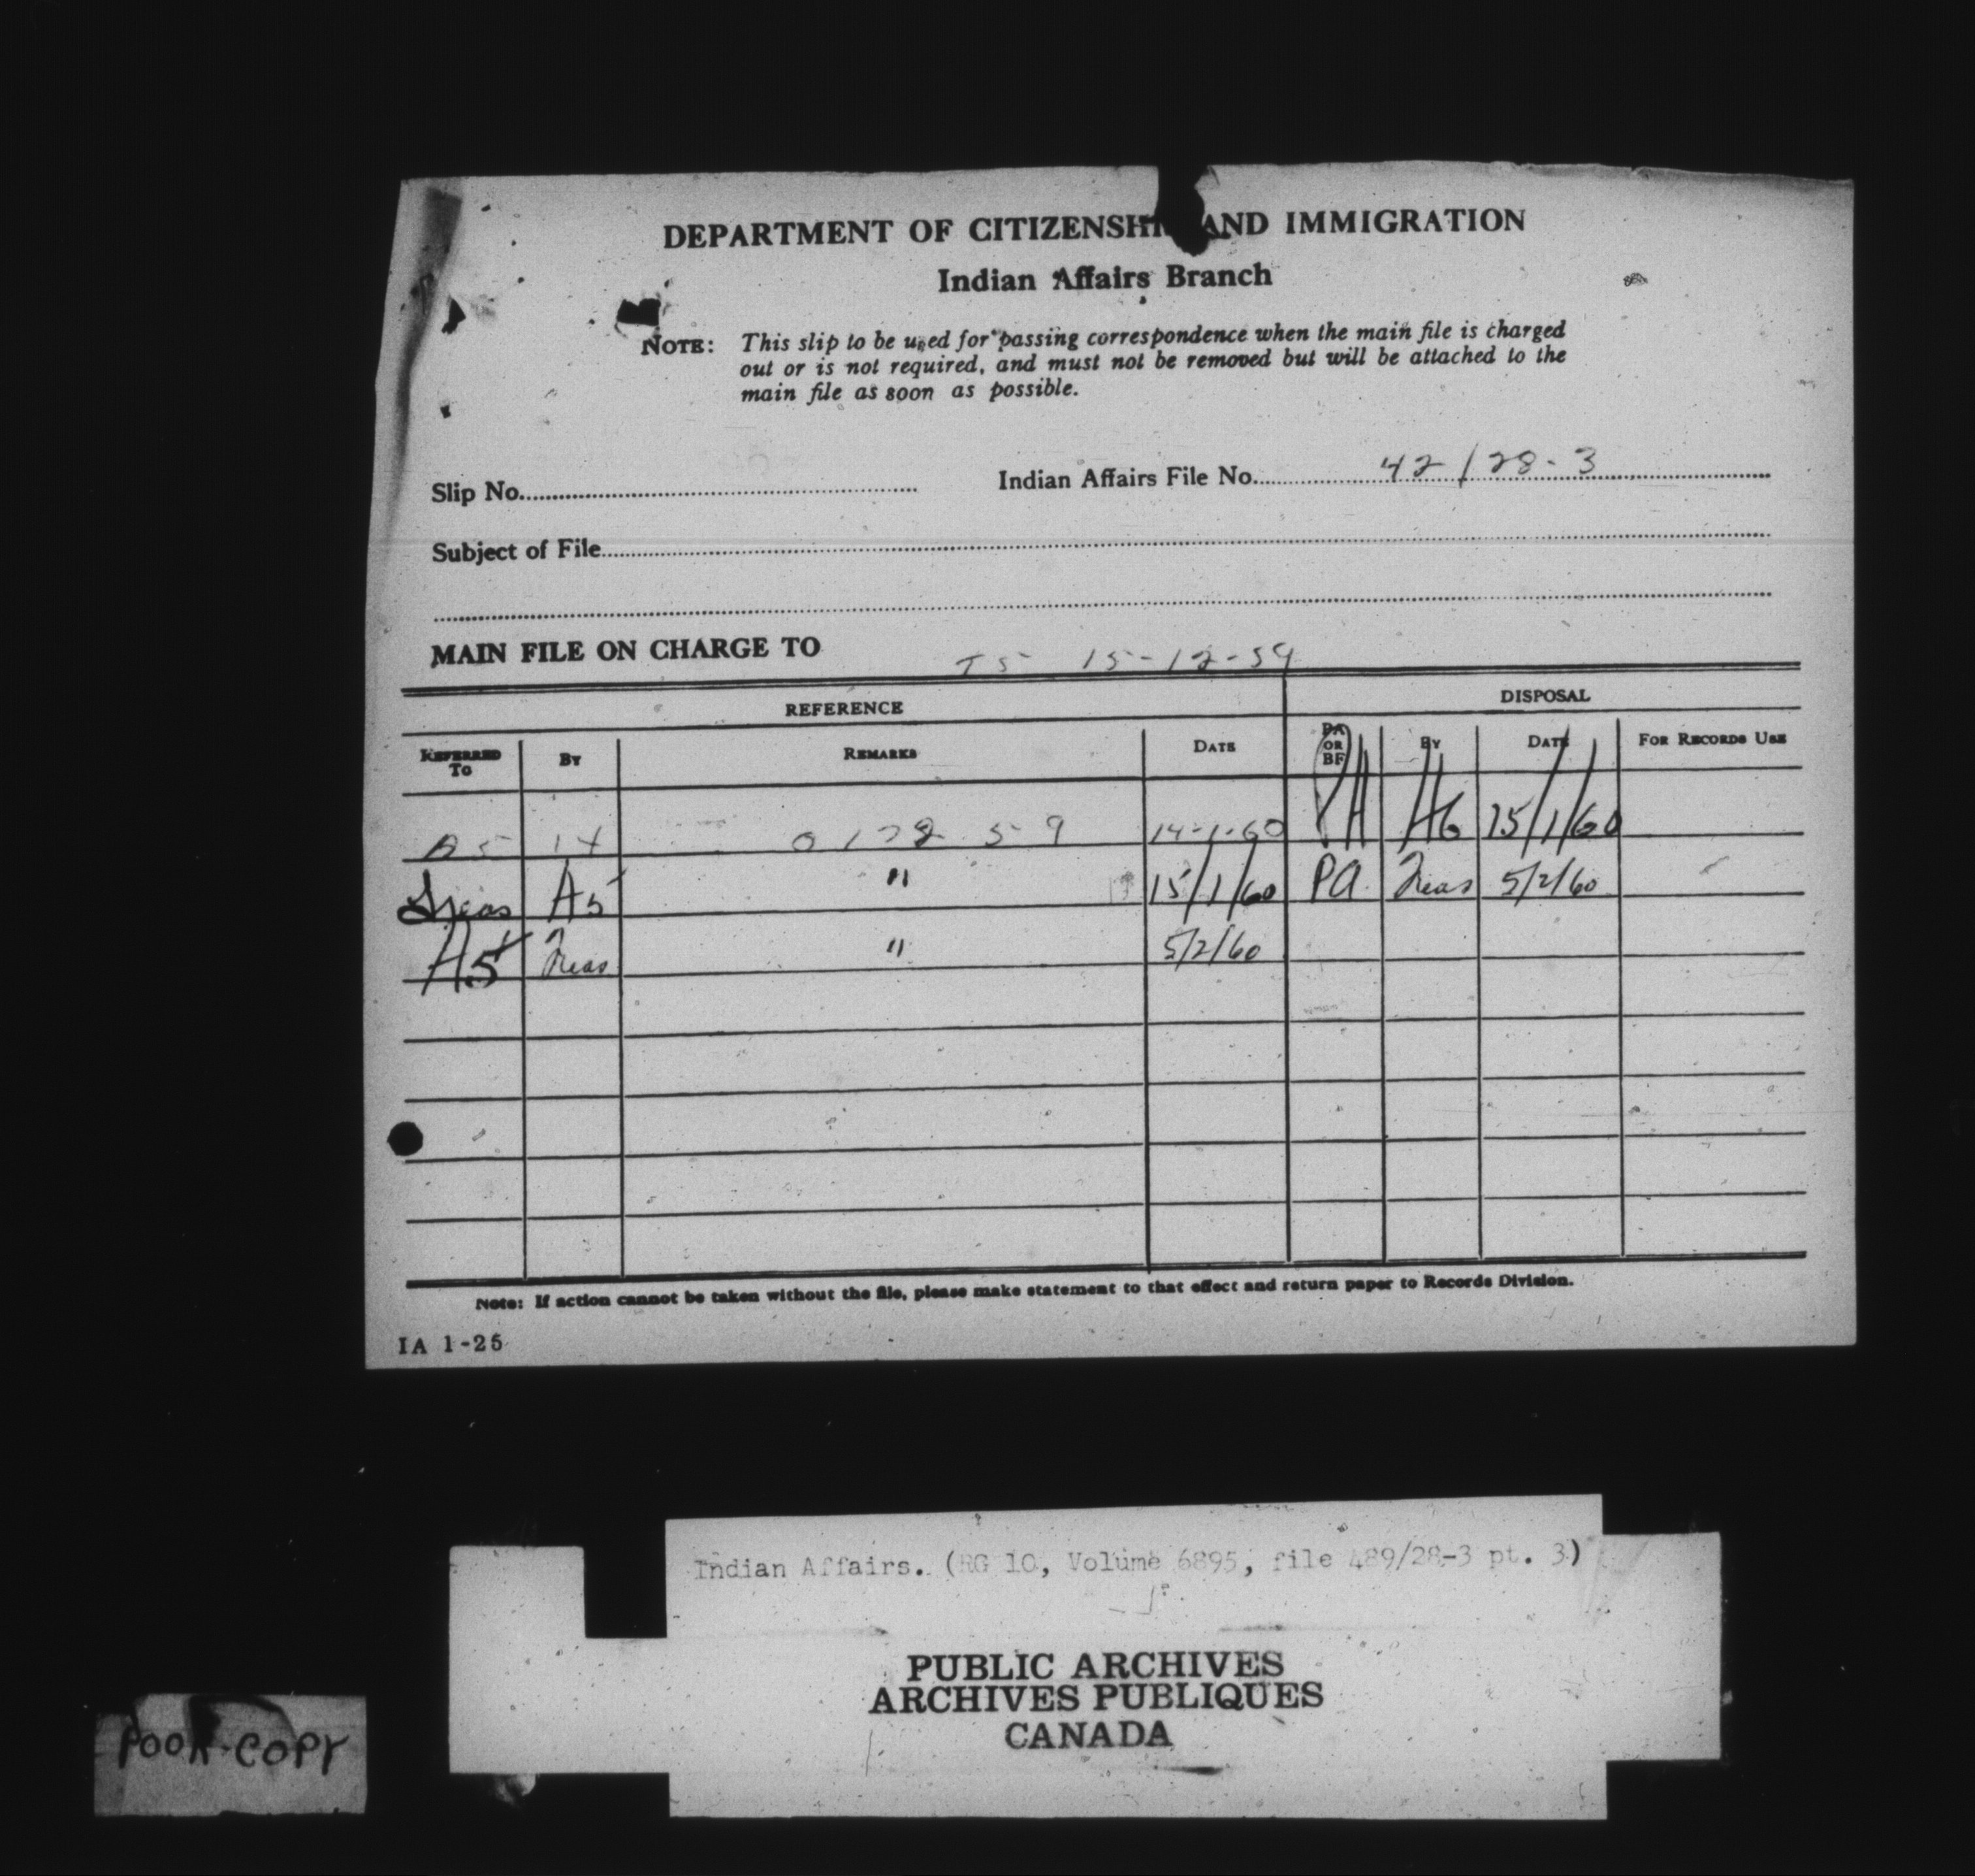 DEPARTMENT OF CITIZENSHIP AND IMMIGRATION
Indian Affairs Branch
NOTE: This slip to be used for passing correspondence when the main file is charged
out or is not required, and must not be removed but will be attached to the
main file as soon as possible.
Slip No. Indian Affairs File No. 42/28-3
Subject of File
MAIN FILE ON CHARGE TO
T5 15-12-59
REFERENCE DISPOSAL
REFERRED TO BY REMARKS DATE PA OR BF BY DATE FOR RECORDS USE
A5 14 0172 59 14-1-60 PA A6 15/1/60
Treas A5 " 15/1/60 PA Treas 5/2/60
A5 Treas " 5/2/60
Note: If action cannot be taken without the file, please make statement to that effect and return paper to Records Division.
IA 1-25
Indian Affairs. (RG 10, Volume 6895, file 489/28-3 pt. 3)
PUBLIC ARCHIVES
ARCHIVES PUBLIQUES
CANADA
POOR COPY